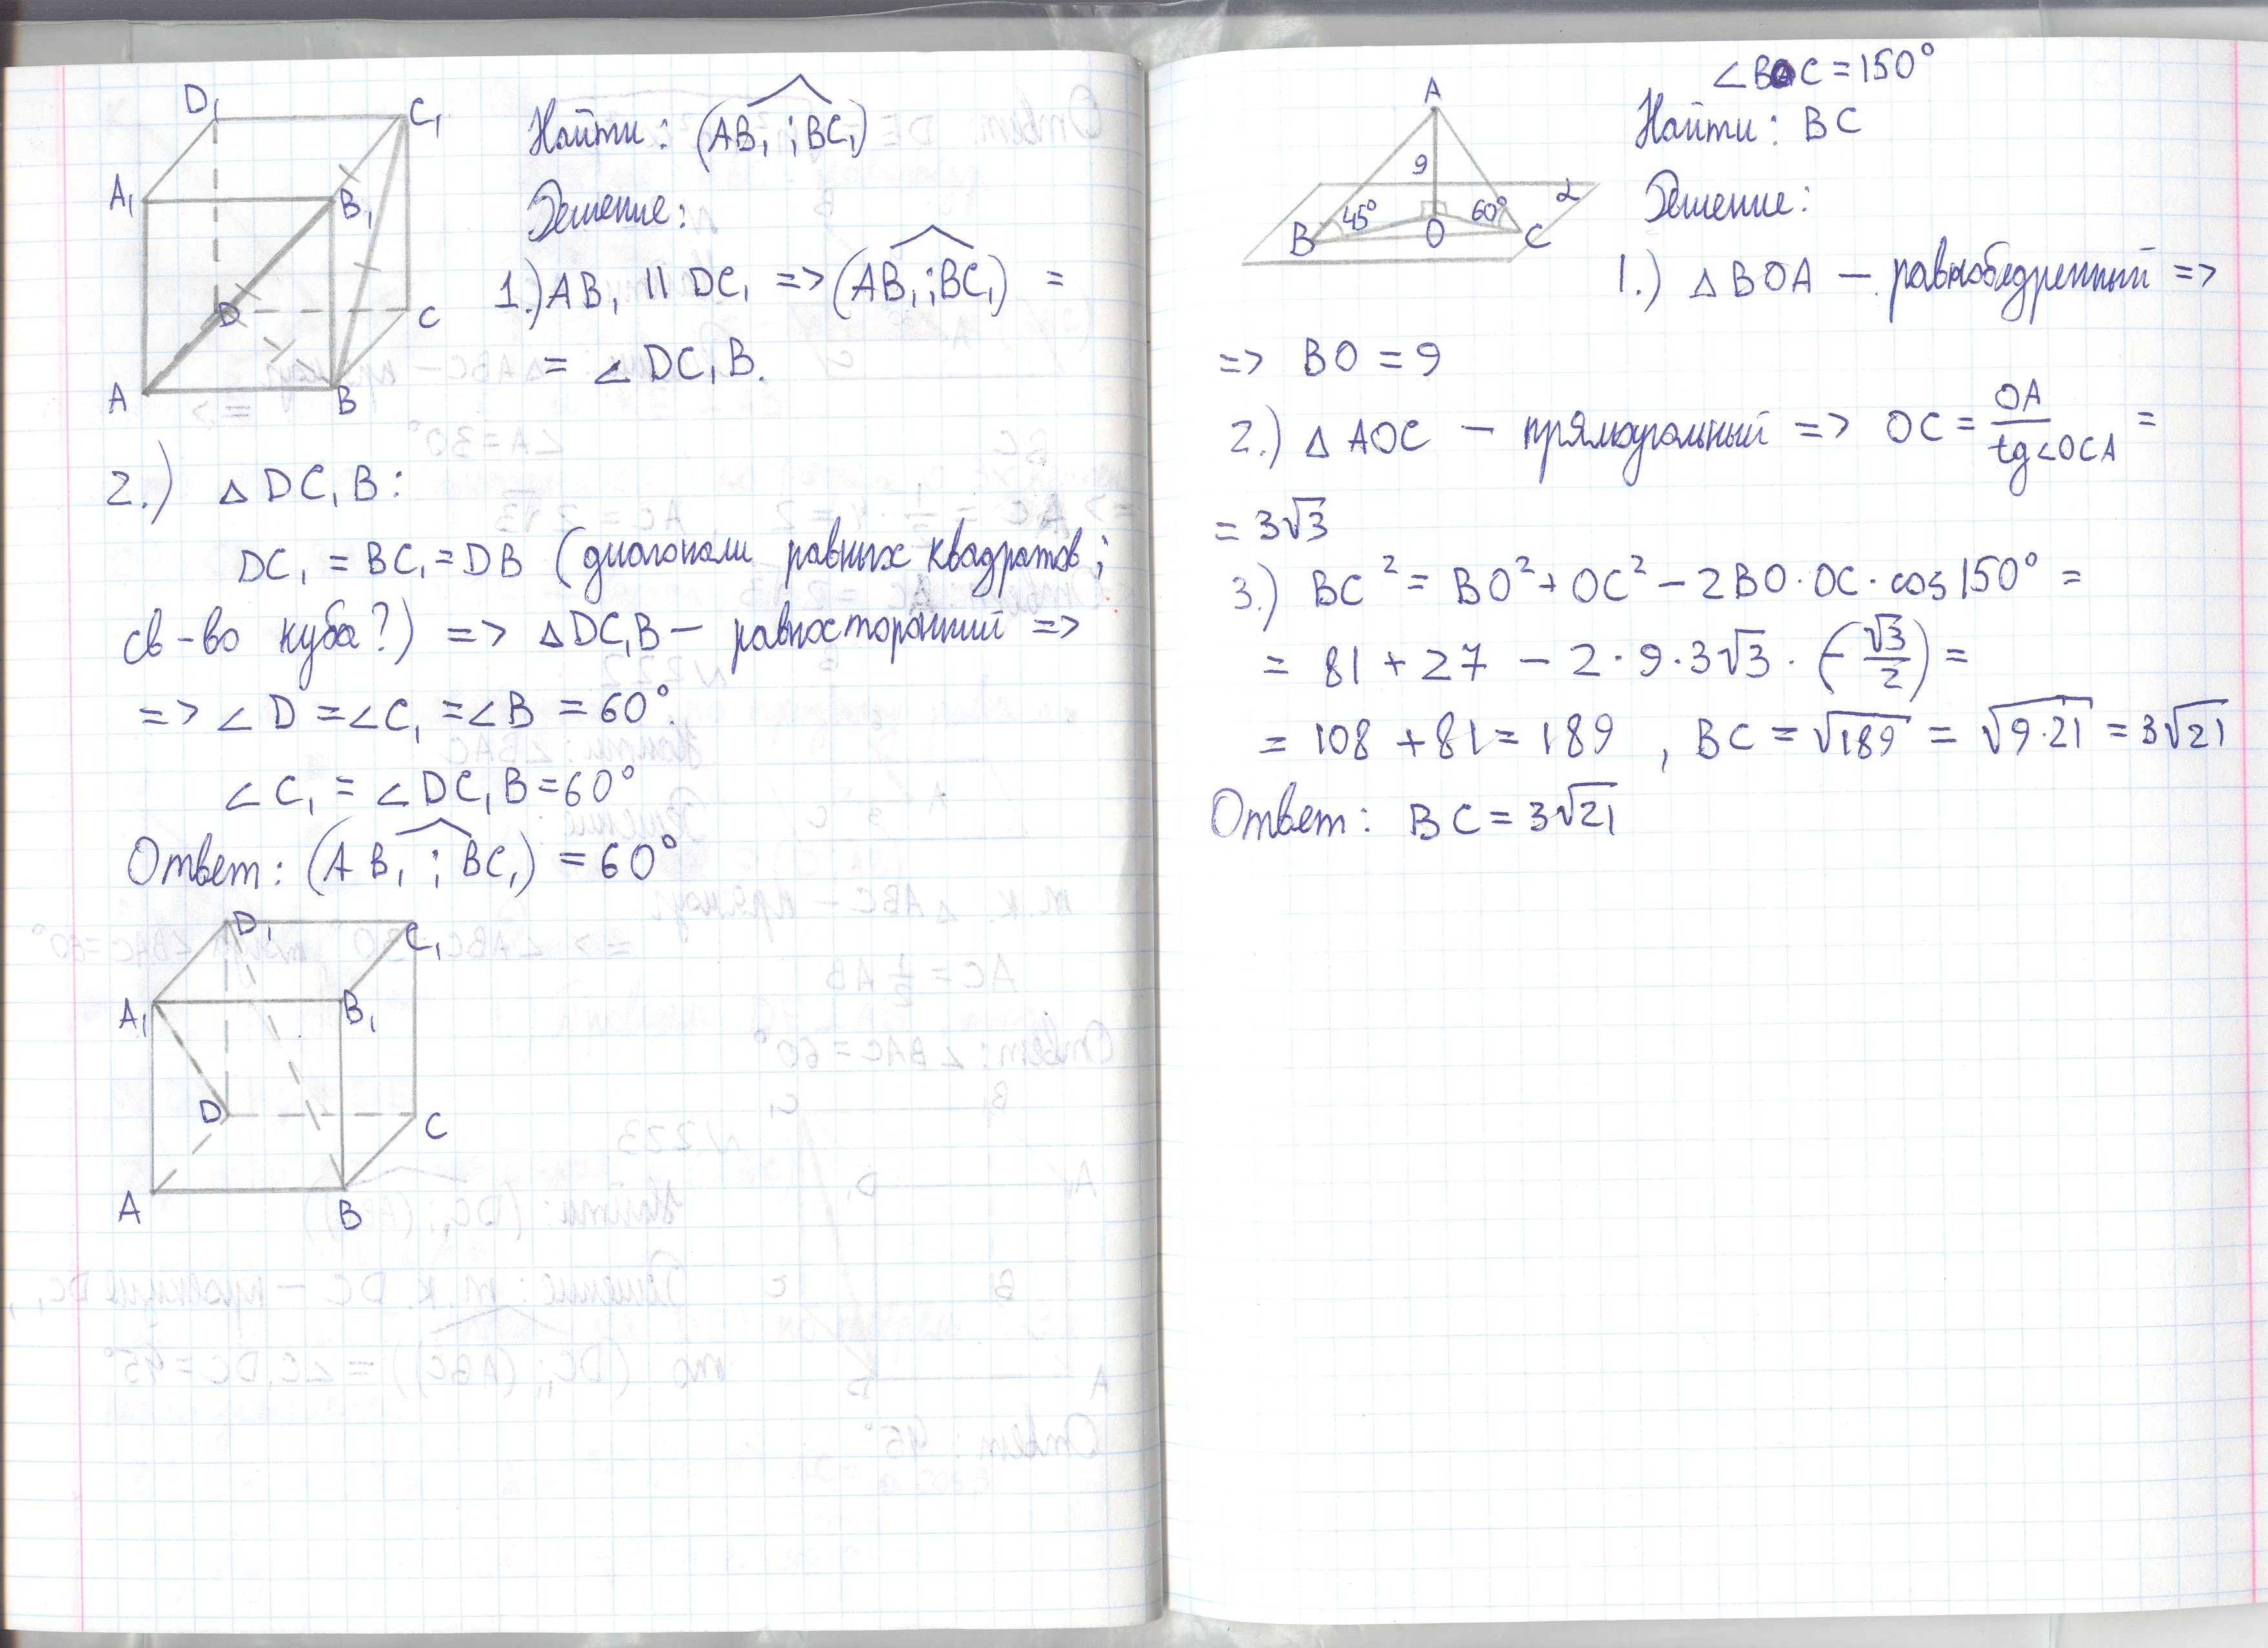 D₁ C₁
A₁ B₁
D C
A B
Найти: (AB₁ ; BC₁)
Решение:
1.) AB₁ || DC₁ => (AB₁ ; BC₁) =
= ∠DC₁B.
2.) △ DC₁B:
DC₁ = BC₁ = DB (диагонали равных квадратов;
св-во куба?) => △DC₁B — равносторонний =>
=> ∠D = ∠C₁ = ∠B = 60°.
∠C₁ = ∠DC₁B = 60°
Ответ: (AB₁ ; BC₁) = 60°
D₁ C₁
A₁ B₁
D C
A B
∠BOC = 150°
A
9
α
B 45° O 60° C
Найти: BC
Решение:
1.) △ BOA — равнобедренный =>
=> BO = 9
2.) △ AOC — прямоугольный => OC = OA / tg∠OCA =
= 3√3
3.) BC² = BO² + OC² - 2BO·OC·cos150° =
= 81 + 27 - 2·9·3√3·(-√3/2) =
= 108 + 81 = 189 , BC = √189 = √9·21 = 3√21
Ответ: BC = 3√21